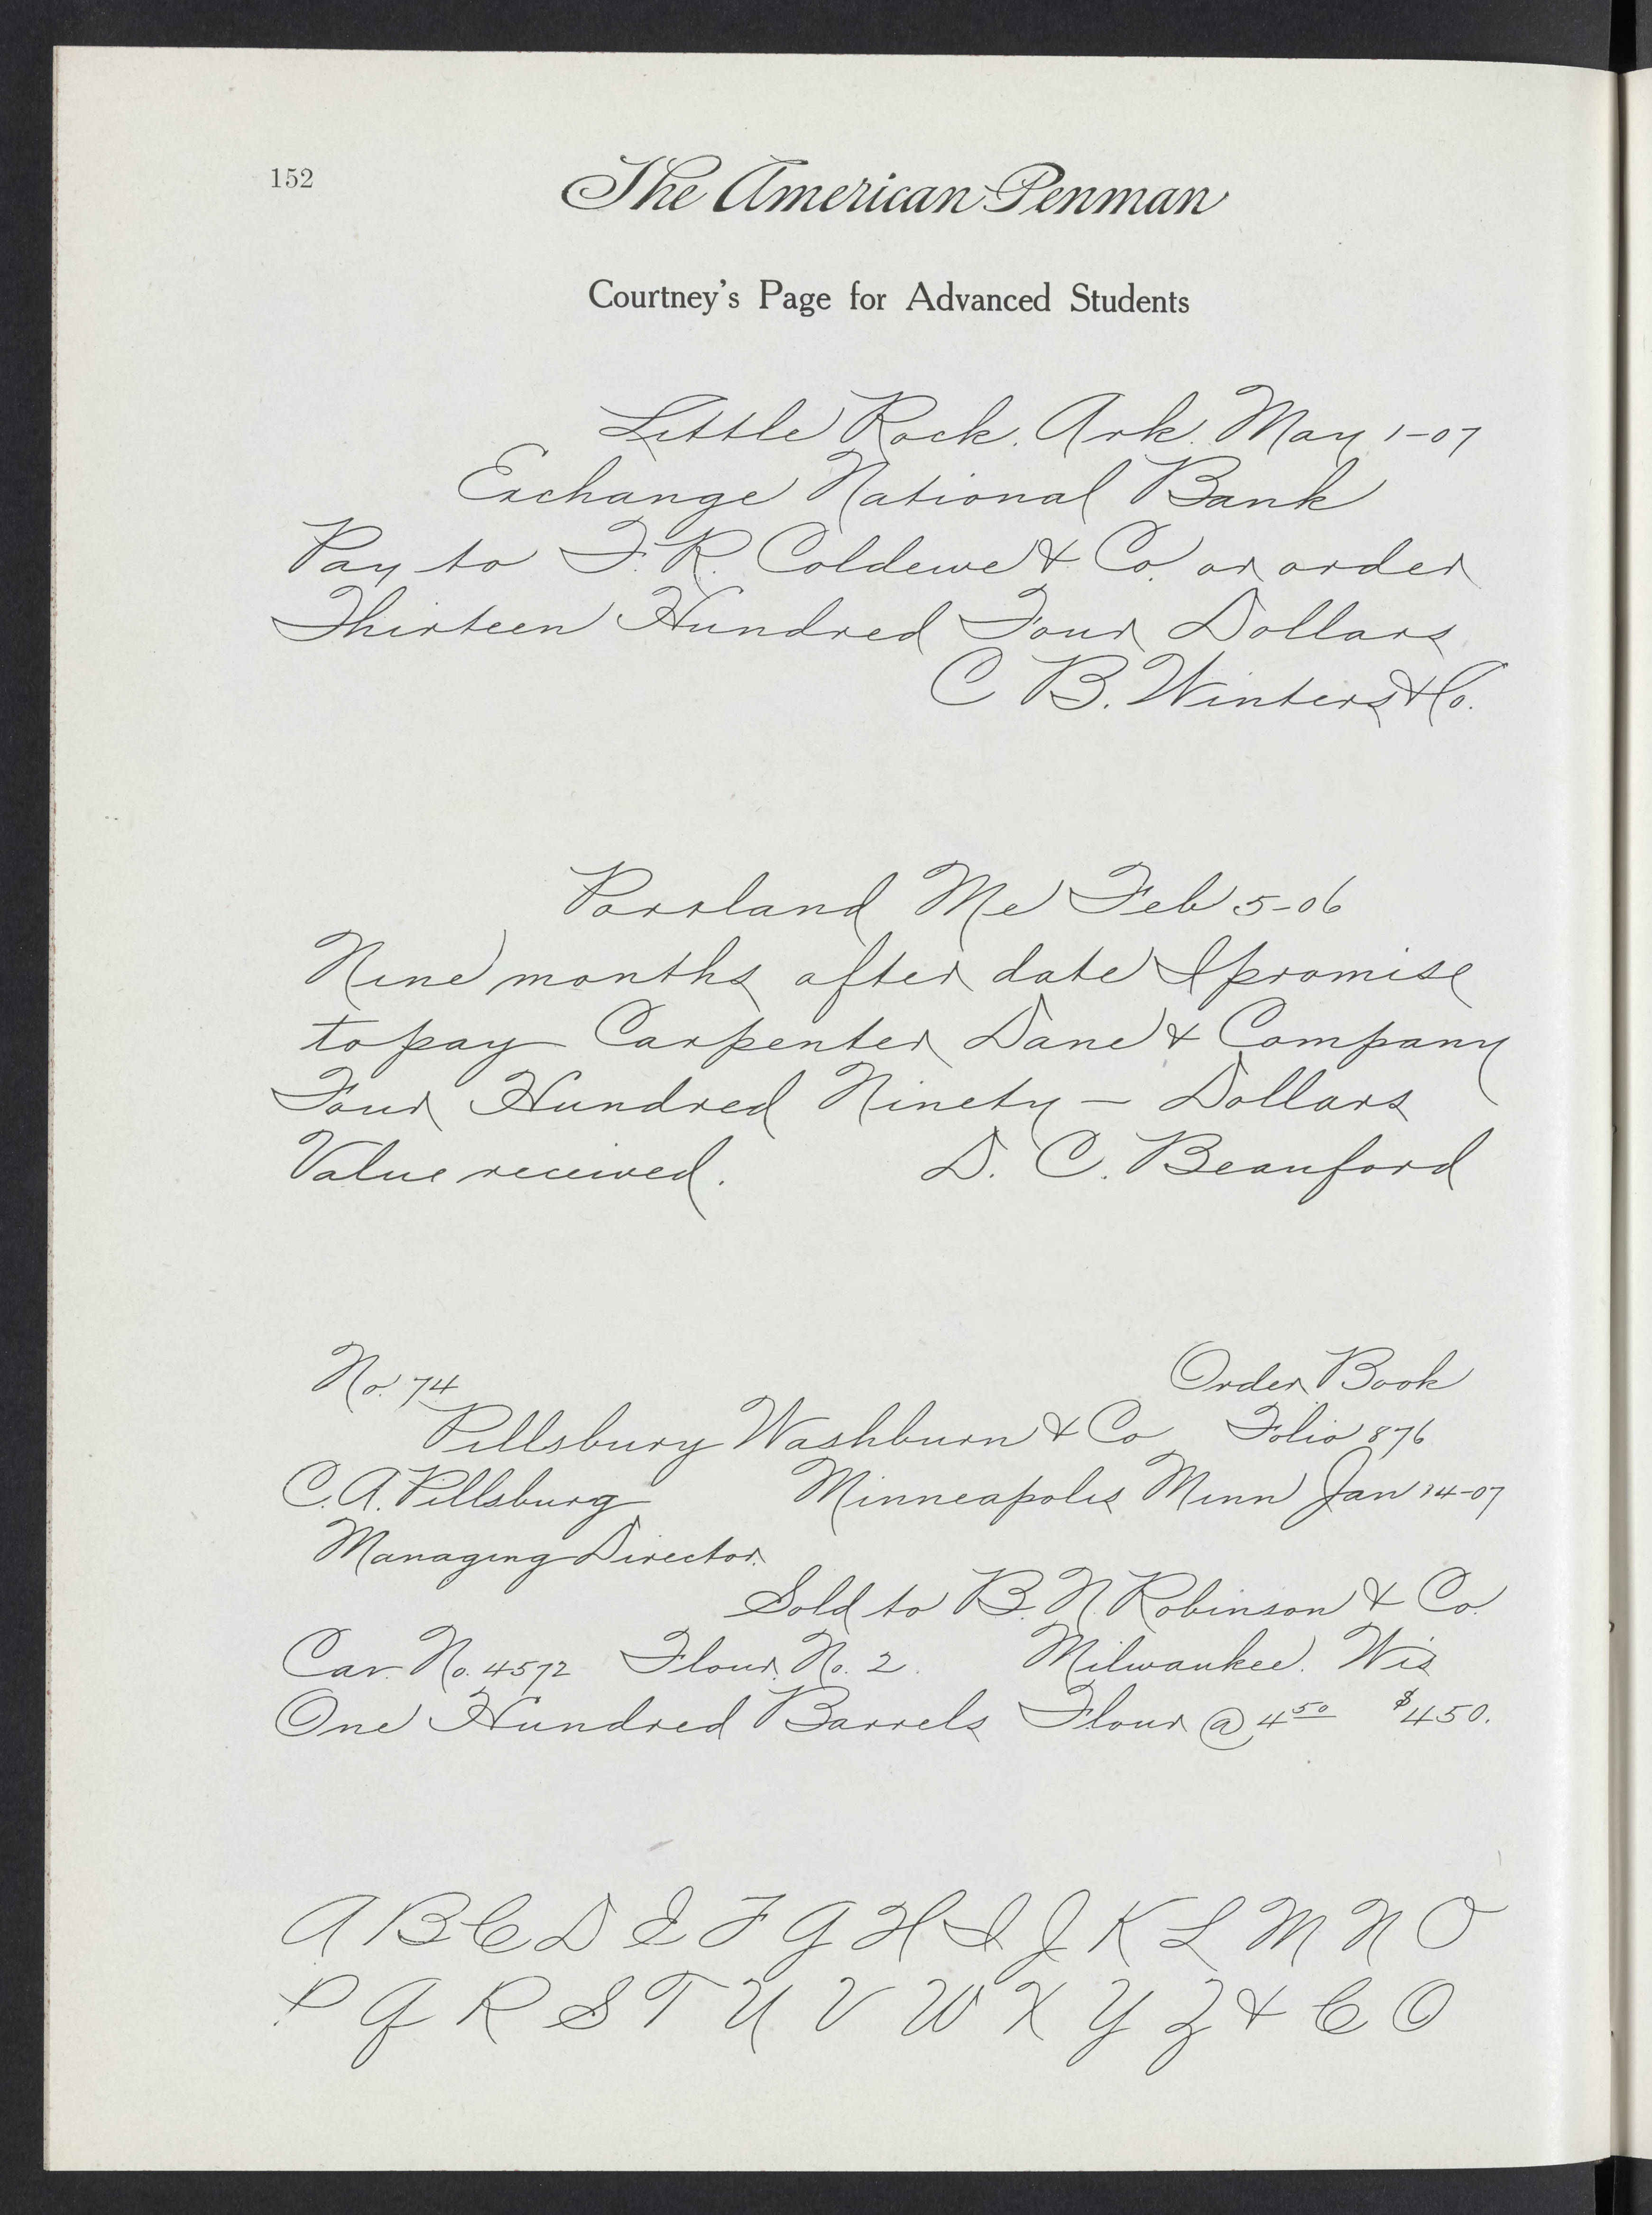 152
The American Penman
Courtney's Page for Advanced Students
Little Rock. Ark. May 1-07
Exchange National Bank
Pay to F. R. Coldewe & Co. or order
Thirteen Hundred Four Dollars
C B. Winters & Co.
Portland Me Feb 5-06
Nine months after date I promise
to pay Carpenter Dane & Company
Four Hundred Ninety — Dollars
Value received. D. C. Beauford
No. 74 Order Book
Pillsbury Washburn & Co Folio 876
C. A. Pillsbury Minneapolis Minn Jan 14-07
Managing Director.
Sold to B. N. Robinson & Co.
Car. No. 4572 Flour. No. 2. Milwaukee. Wis
One Hundred Barrels Flour @ 4 50 $450.
A B C D E F G H I J K L M N O
P Q R S T U V W X Y Z & C O